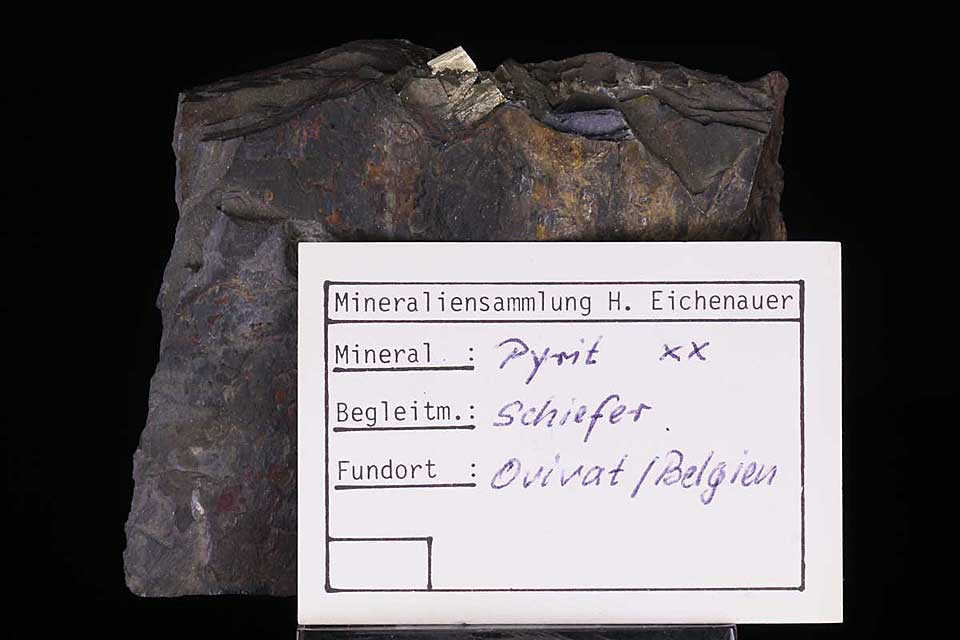 Mineraliensammlung H. Eichenauer
Mineral : Pyrit xx
Begleitm.: Schiefer
Fundort : Ovivat/Belgien